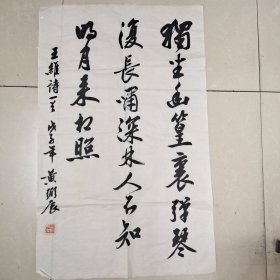 獨坐幽篁裏彈琴
復長嘯深林人不知
明月来相照
王維詩一首 戊子年 黄